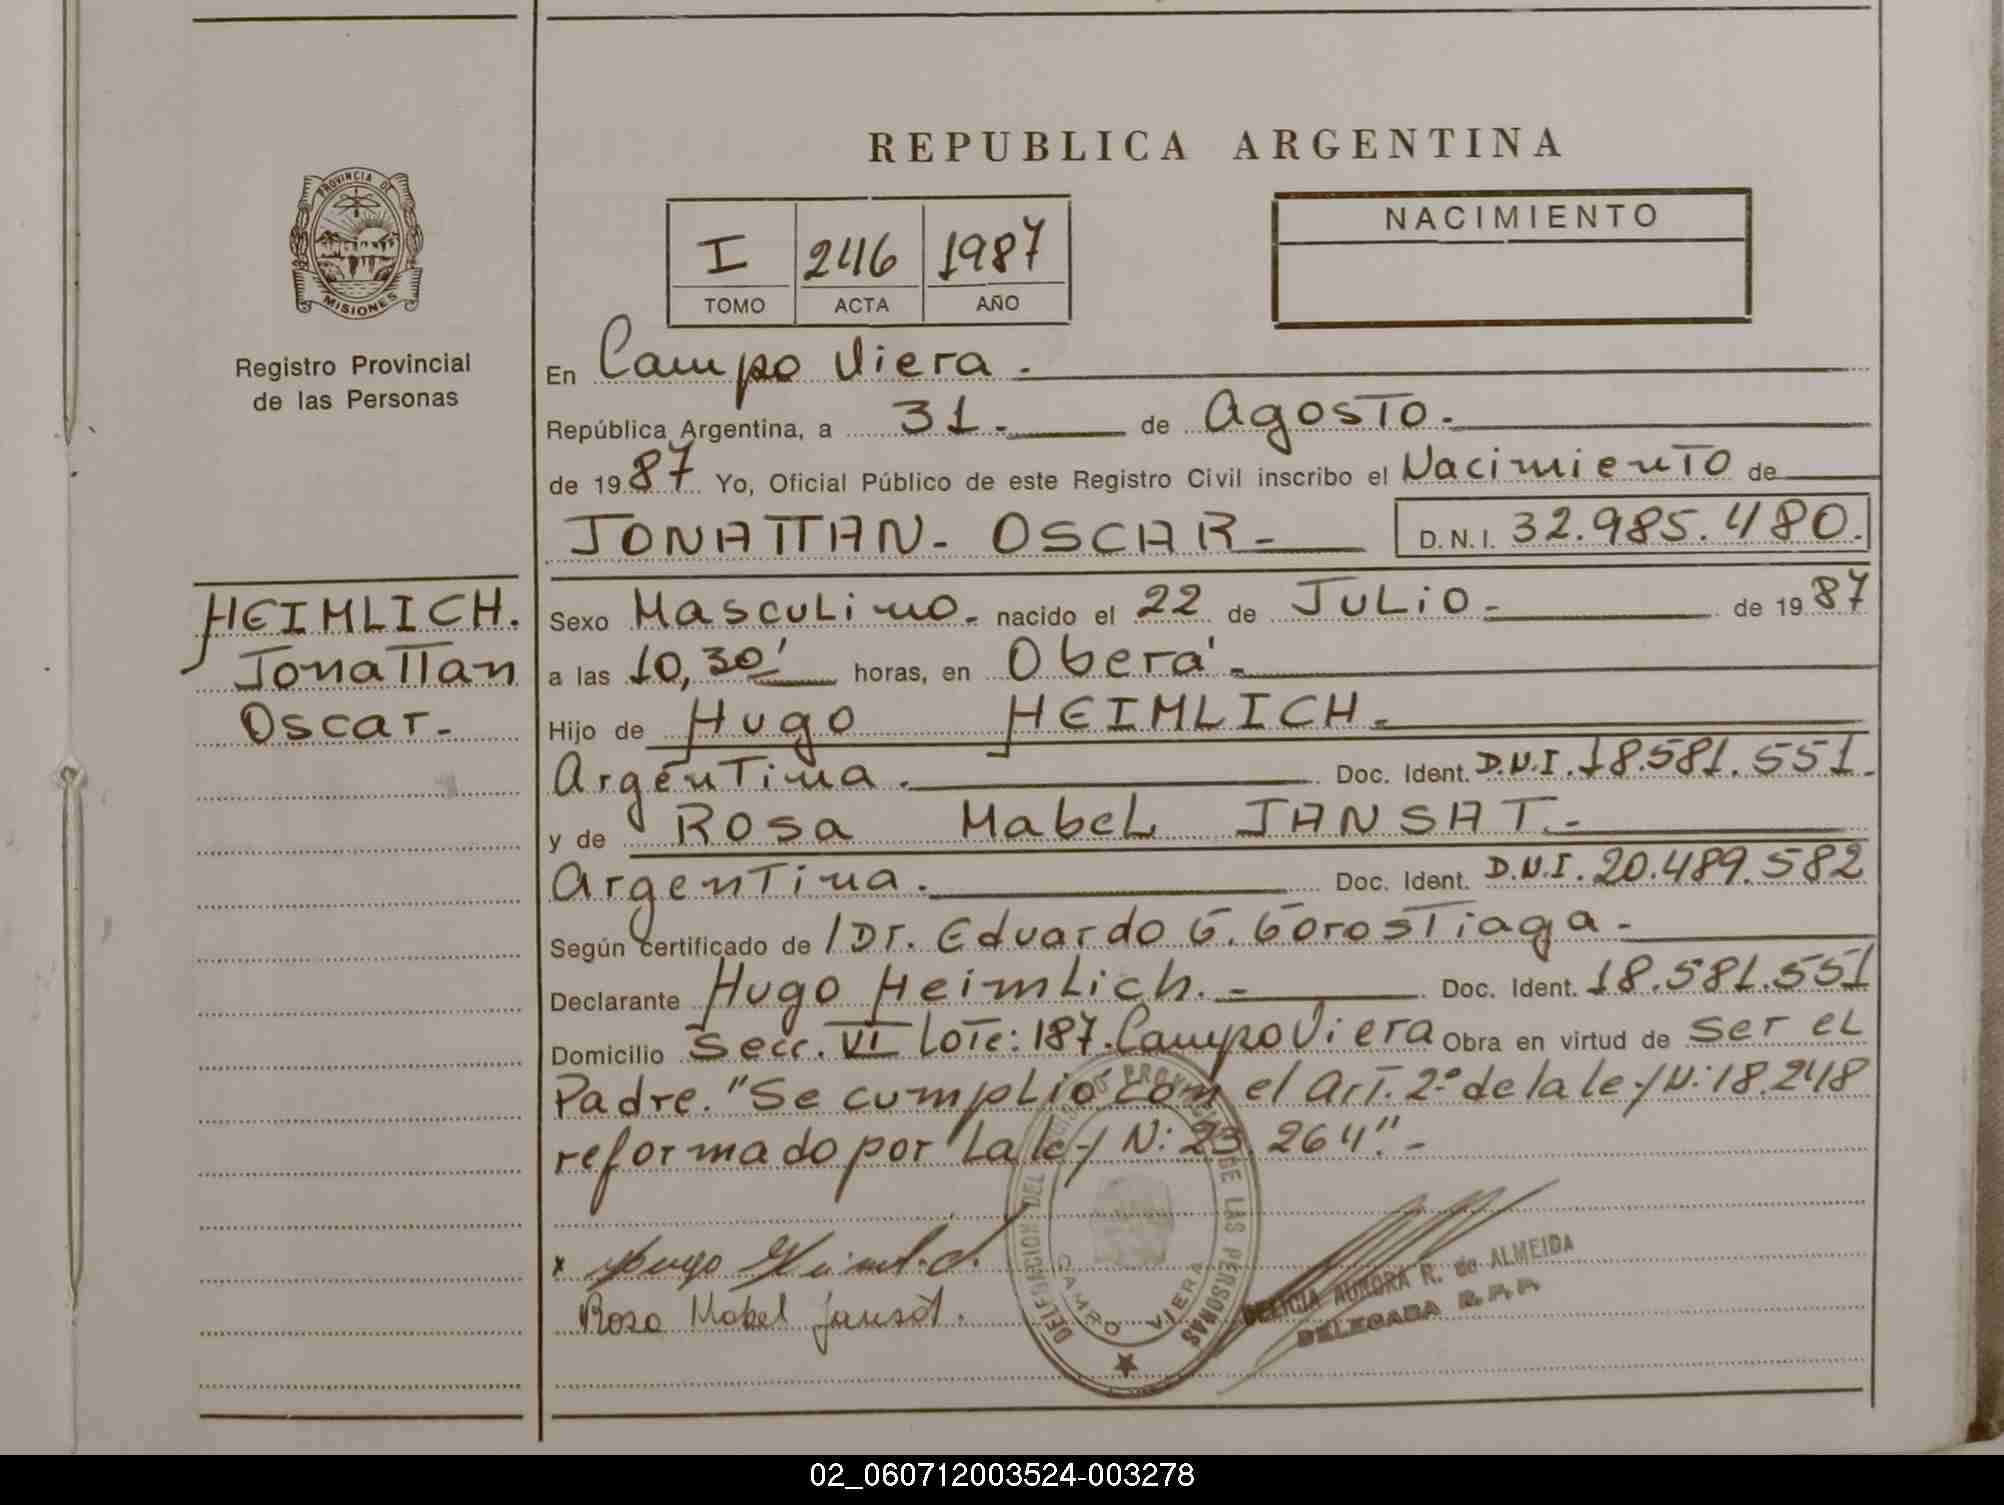 REPUBLICA ARGENTINA
PROVINCIA DE
MISIONES
Registro Provincial
de las Personas
I 246 1987
TOMO ACTA AÑO
NACIMIENTO
En Campo Viera.
República Argentina, a 31. de Agosto.
de 1987 Yo, Oficial Público de este Registro Civil inscribo el Nacimiento de
JONATTAN. OSCAR. D.N.I. 32.985.480.
HEIMLICH.
Jonattan
Oscar.
Sexo Masculino. nacido el 22 de Julio. de 1987
a las 10,30' horas, en Oberá.
Hijo de Hugo HEIMLICH.
Argentina. Doc. Ident. D.N.I. 18.581.551.
y de Rosa Mabel JANSAT.
Argentina. Doc. Ident. D.N.I. 20.489.582
Según certificado de / Dr. Eduardo G. Gorostiaga.
Declarante Hugo Heimlich. Doc. Ident. 18.581.551
Domicilio Secc. VI Lote: 187. Campo Viera Obra en virtud de ser el
Padre. "Se cumplio con el Art. 2° de la ley N: 18.248
reformado por la ley N: 23.264".
x Hugo
Rosa Mabel Jansat.
DEL PROVINCIAL DE LAS PERSONAS
CAMPO VIERA
DELICIA AURORA R. de ALMEIDA
DELEGADA R.P.P.
02_060712003524-003278